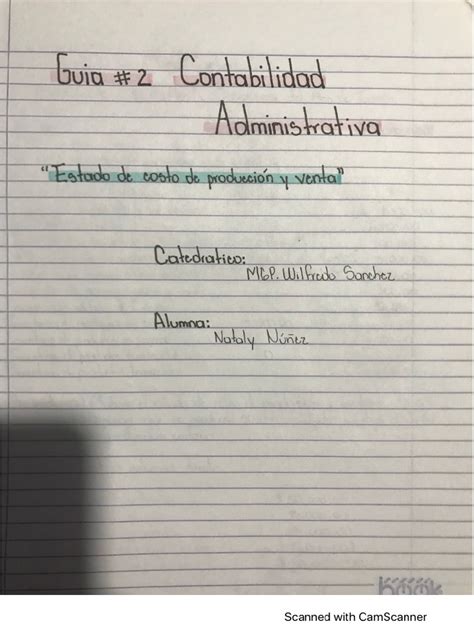 Guia # 2 Contabilidad
Administrativa
"Estado de costo de producción y venta"
Catedratico:
MGP. Wilfredo Sanchez
Alumna:
Nataly Núñez
book
Scanned with CamScanner